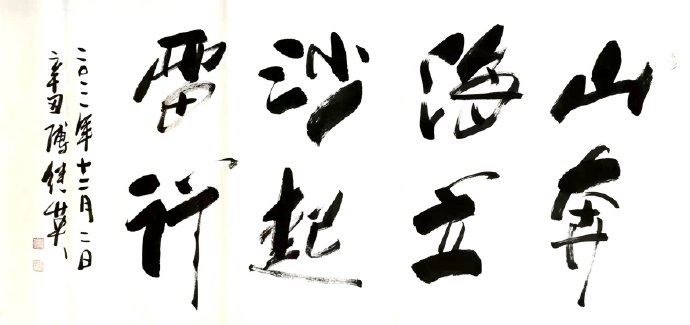 山奔
海立
沙起
雷行
二〇二一年十二月二日
辛丑 傅继英